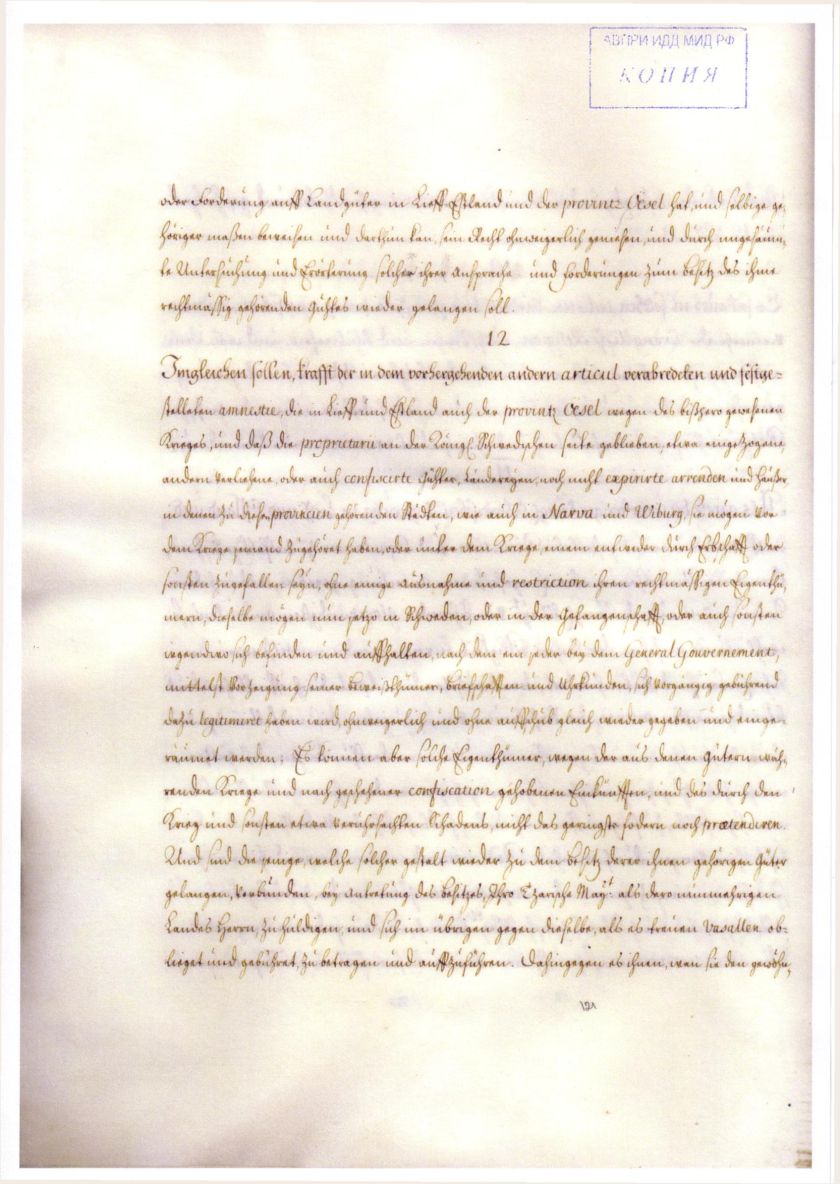 АВПРИ ИДД МИД РФ
КОПИЯ
oder Forderung auff Landgüter in Lieff-Estland und der provintz Oesel hat, und selbige ge-
höriger maßen beweisen und darthun kan, sein Recht ohnweigerlich genießen, und durch ungesäum-
te Untersuchung und Erörterung solcher ihrer Ansprache und Forderungen zum Besitz des ihme
rechtmässig gehörenden Guhtes wieder gelangen soll.
12
Imgleichen sollen, krafft der in dem vorhergehenden andern articul verabredeten und festge-
stelleten amnestie, die in Lieff- und Estland auch der provintz Oesel wegen des bißhero gewesenen
Krieges, und daß die proprietarii an der Königl. Schwedischen seite geblieben, etwa eingezogene,
andern verliehene, oder auch confiscirte Gühter, Ländereyen, noch nicht expirirte arrenden und Häuser
in denen zu diesen provincien gehörenden Städten, wie auch in Narva und Wiburg, sie mögen vor
dem Kriege jemand zugehöret haben, oder unter dem Kriege, einem entweder durch Erbschafft oder
sonsten zugefallen seyn, ohne einige Ausnahme und restriction ihren rechtmässigen Eigenthü-
mern, dieselbe mögen nun jetzo in Schweden, oder in der Gefangenschafft, oder auch sonsten
irgendwo sich befinden und auffhalten, nach dem ein jeder bey dem General Gouvernement,
mittelst Vorzeigung seiner Beweißthümer, Briefschafften und Uhrkunden, sich vorgängig gebührend
dazu legitimiret haben wird, ohnweigerlich und ohne auffschub gleich wieder gegeben und einge-
räumet werden; Es können aber solche Eigenthümer, wegen der aus denen Gütern wäh-
renden Kriege und nach geschehener confiscation gehobenen Einkünfften, und des durch den
Krieg und sonsten etwa veruhrsachten Schadens, nicht das geringste fodern noch prætendiren.
Und sind die jenige, welche solcher gestalt wieder zu dem Besitz derer ihnen gehörigen Güter
gelangen, verbunden, bey Antretung des Besitzes, Ihro Tzarische Mayt. als dero nunmehrigen
Landes Herrn, zu huldigen, und sich im übrigen gegen dieselbe, als es treuen Vasallen ob-
lieget und gebühret, zu betragen und auffzuführen. Dahingegen es ihnen, wan sie den gewöhn-